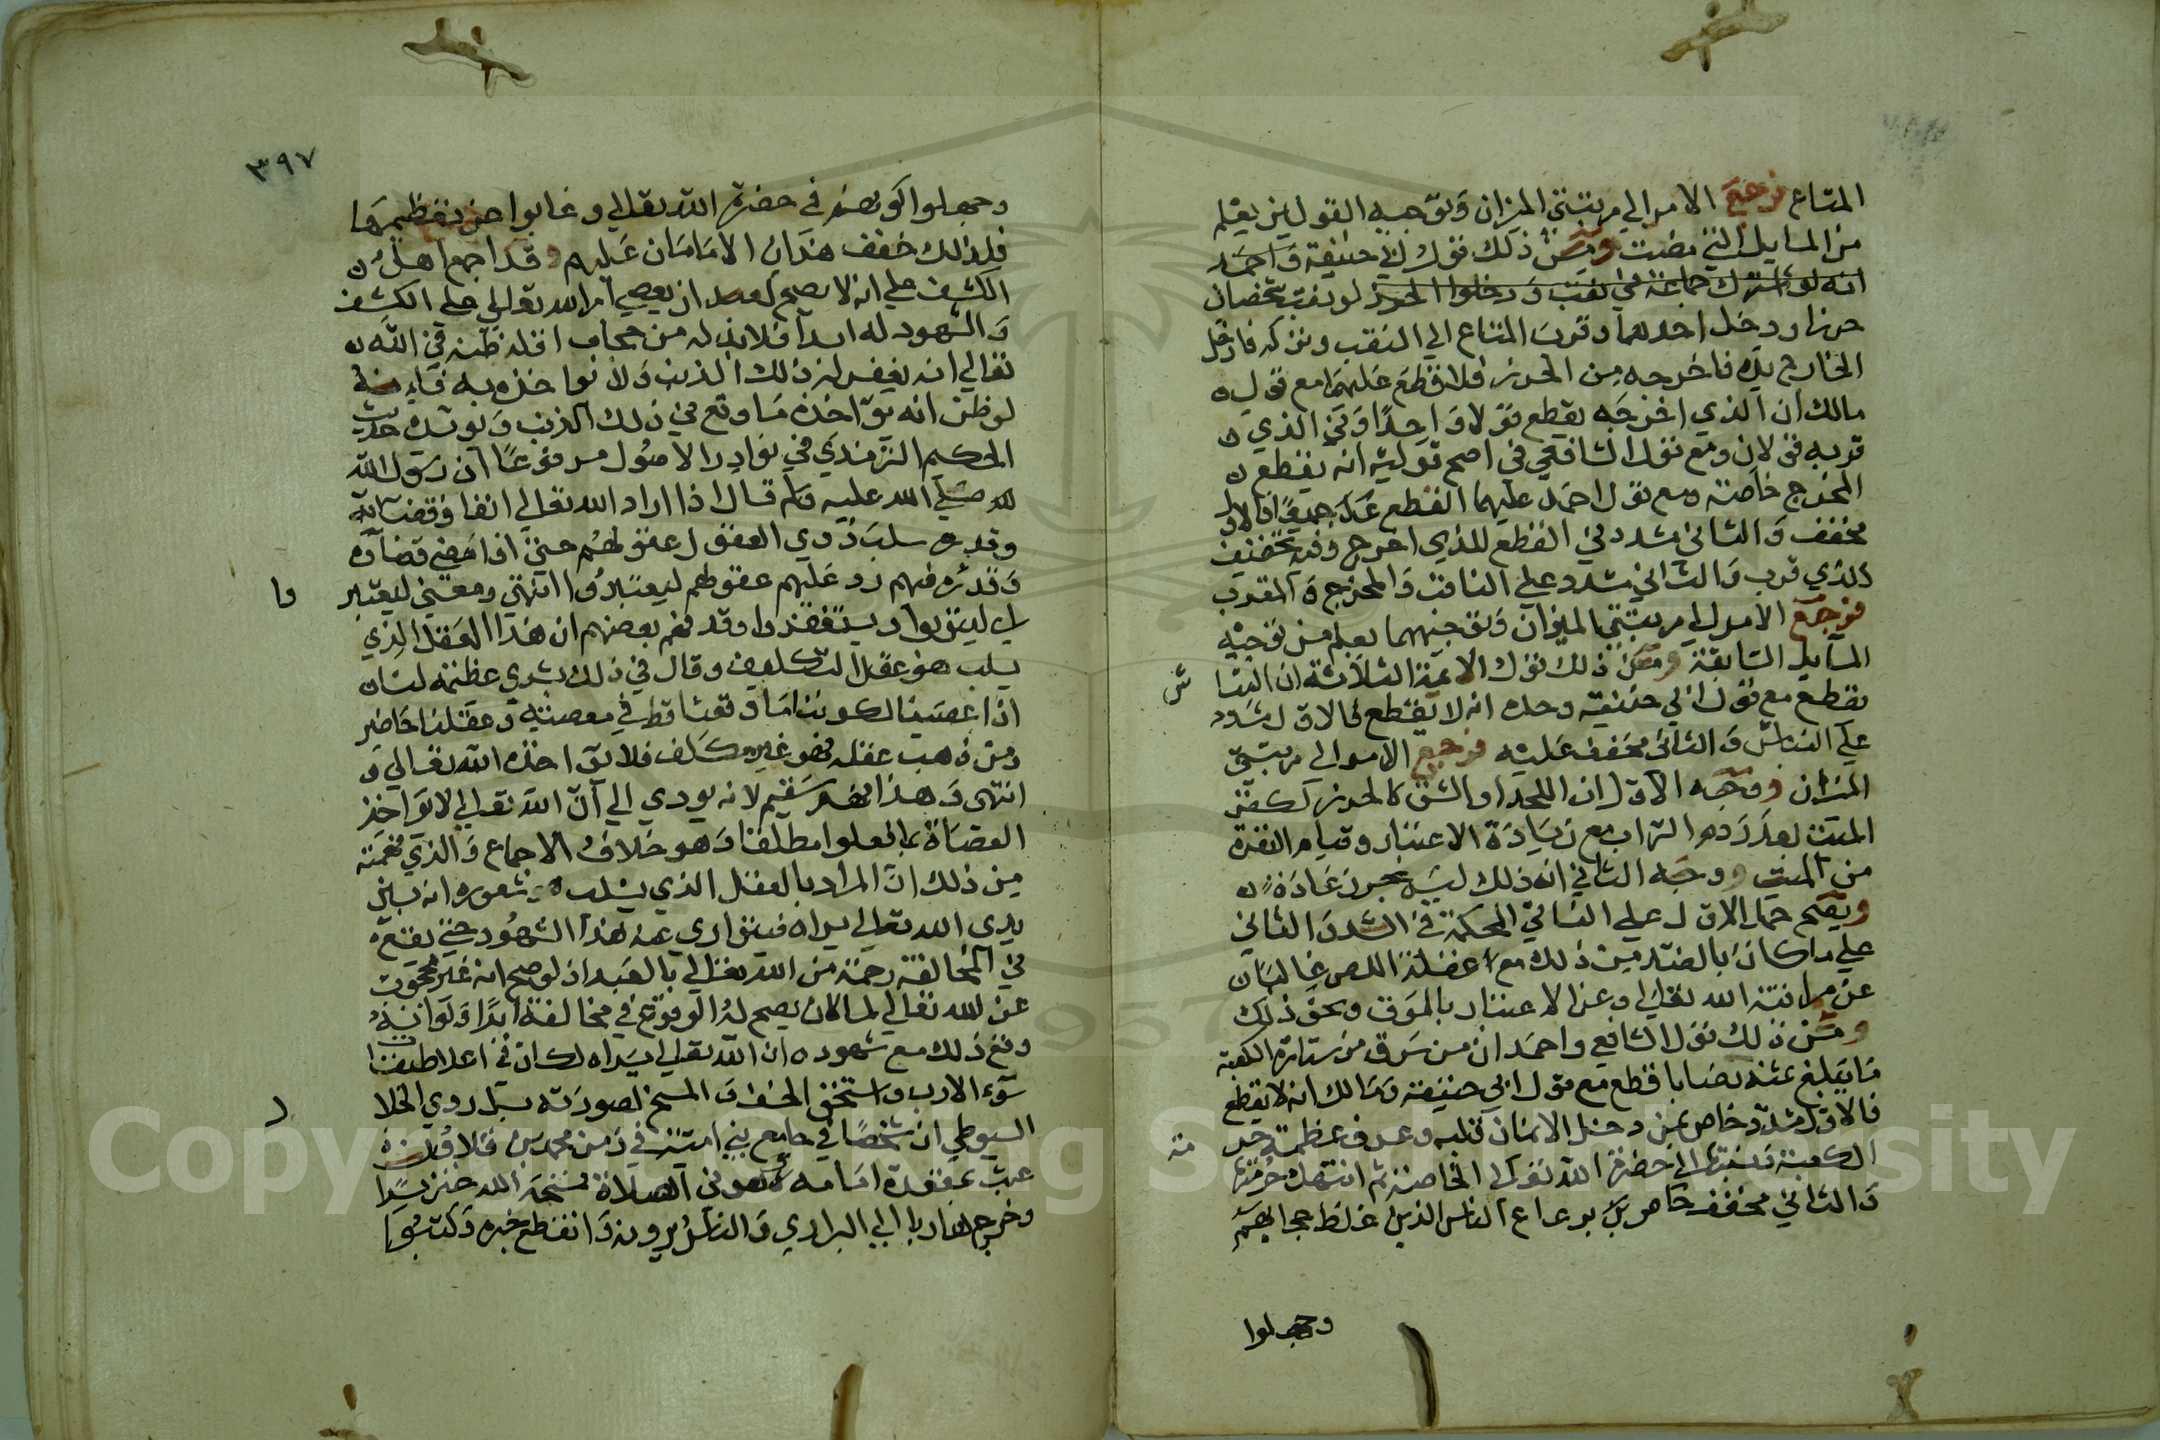 المتاع فرجع الامر الي مرتبتي الميزان وتوجيه القولين يعلم
من المسايل التي مضت ومن ذلك قول ابي حنيفة واحمد
انه لو اشترك جماعة في نقب ودخلوا الحرز لو نقب شخصان
حرزا ودخل احدهما وقرب المتاع الي النقب وتركه فادخل
الخارج يده فاخرجه من الحرز فلا قطع عليهما مع قول
مالك ان الذي اخرجه يقطع قولا واحدا وفي الذي
قربه قولان ومع قول الشافعي في اصح قوليه انه يقطع
المخرج خاصة ومع قول احمد عليهما القطع جميعا فالاول
مخفف والثاني مشدد في القطع للذي اخرج وفيه تخفيف
للذي قرب والثالث مشدد علي الناقب والمخرج والمقرب
فرجع الامر الي مرتبتي الميزان وتوجيههما يعلم من توجيه
المسايل السابقة ومن ذلك قول الايمة الثلاثة ان النبا
ش
يقطع مع قول ابي حنيفة وحده انه لا يقطع فالاول مشدد
علي النباش والثاني مخفف عليه فرجع الامر الي مرتبتي
الميزان ووجه الاول ان اللحد او الشق كالحرز لكفن
الميت بعد ردم التراب مع زيادة الاعتبار وقيام النفرة
من الميت ووجه الثاني ان ذلك ليس بحرز عادة
ويصح حمل الاول علي النباش المحكمة في الشد والثاني
علي ما كان بالضد من ذلك مع غفلة اللص غالبا
عن مراقبة الله تعالي وعن الاعتبار بالموت ونحو ذلك
ومن ذلك قول الشافعي واحمد ان من سرق من ستارة الكعبة
ما يبلغ ثمنه نصابا قطع مع قول ابي حنيفة ومالك انه لا يقطع
فالاول مشدد خاص بمن دخل الايمان قلبه وعرف عظمة حر
مة
الكعبة نسبتها الي حضرة الله تعالي الخاصة ثم انتهك حرمتها
والثاني مخفف خاص برعاع الناس الذين غلظ حجابهم
وجعلوا
٣٩٧
وجعلوا كونهم في حضرة الله تعالي وغابوا عن تعظيمها
فلذلك خفف هذان الامامان عليهم وقد اجمع اهل
الكشف علي انه لا يصح لعبد ان يعصي امر الله تعالي علي الكشف
والشهود له ابدا فلا بد له من حجاب اقله ظنه في الله
تعالي انه يغفر له ذلك الذنب ولا يواخذه به فانه
لو ظن انه يواخذه ما وقع في ذلك الذنب ويويده حديث
الحكيم الترمذي في نوادر الاصول مرفوعا ان رسول الله
صلي الله عليه وسلم قال اذا اراد الله تعالي انفاذ قضائه
وقدره سلب ذوي العقول عقولهم حتي اذا امضي قضاه
وقدره فيهم رد عليهم عقولهم ليعتبروا انتهي ومعني ليعتبر
وا
اي ليتوبوا ويستغفروا وقد فهم بعضهم ان هذا العقل الذي
يسلب هو عقل التكليف وقال في ذلك بشري عظيمة لنا
اذا عصينا لكوننا ما وقعنا قط في معصية وعقلنا حاضر
ومن ذهب عقله فهو غير مكلف فلا يواخذه الله تعالي
انتهي وهذا فهم سقيم لانه يودي الي ان الله تعالي لا يواخذ
العصاة بما فعلوا مطلقا وهو خلاف الاجماع والذي فهمته
من ذلك ان المراد بالعقل الذي يسلب شعوره انه بين
يدي الله تعالي يراه فيتواري عنه هذا الشهود حتي يقع
في المخالفة رحمة من الله تعالي بالعبد اذ لو صح انه غير محجوب
عن الله تعالي لما كان يصح له الوقوع في مخالفة ابدا ولو انه
وقع ذلك مع شهوده ان الله تعالي يراه لكان في اعلا طبقا
سوء الادب واستحق الخسف والمسخ لصورته بل روي الجلا
ل
السيوطي ان شخصا في جامع بني امية في زمن محمد بن قلاوون
عبث بمقعدة امامه وهو في الصلاة فمسخه الله خنزيرا
وخرج هاربا الي البراري والناس يرونه وانقطع خبره وكتب بها